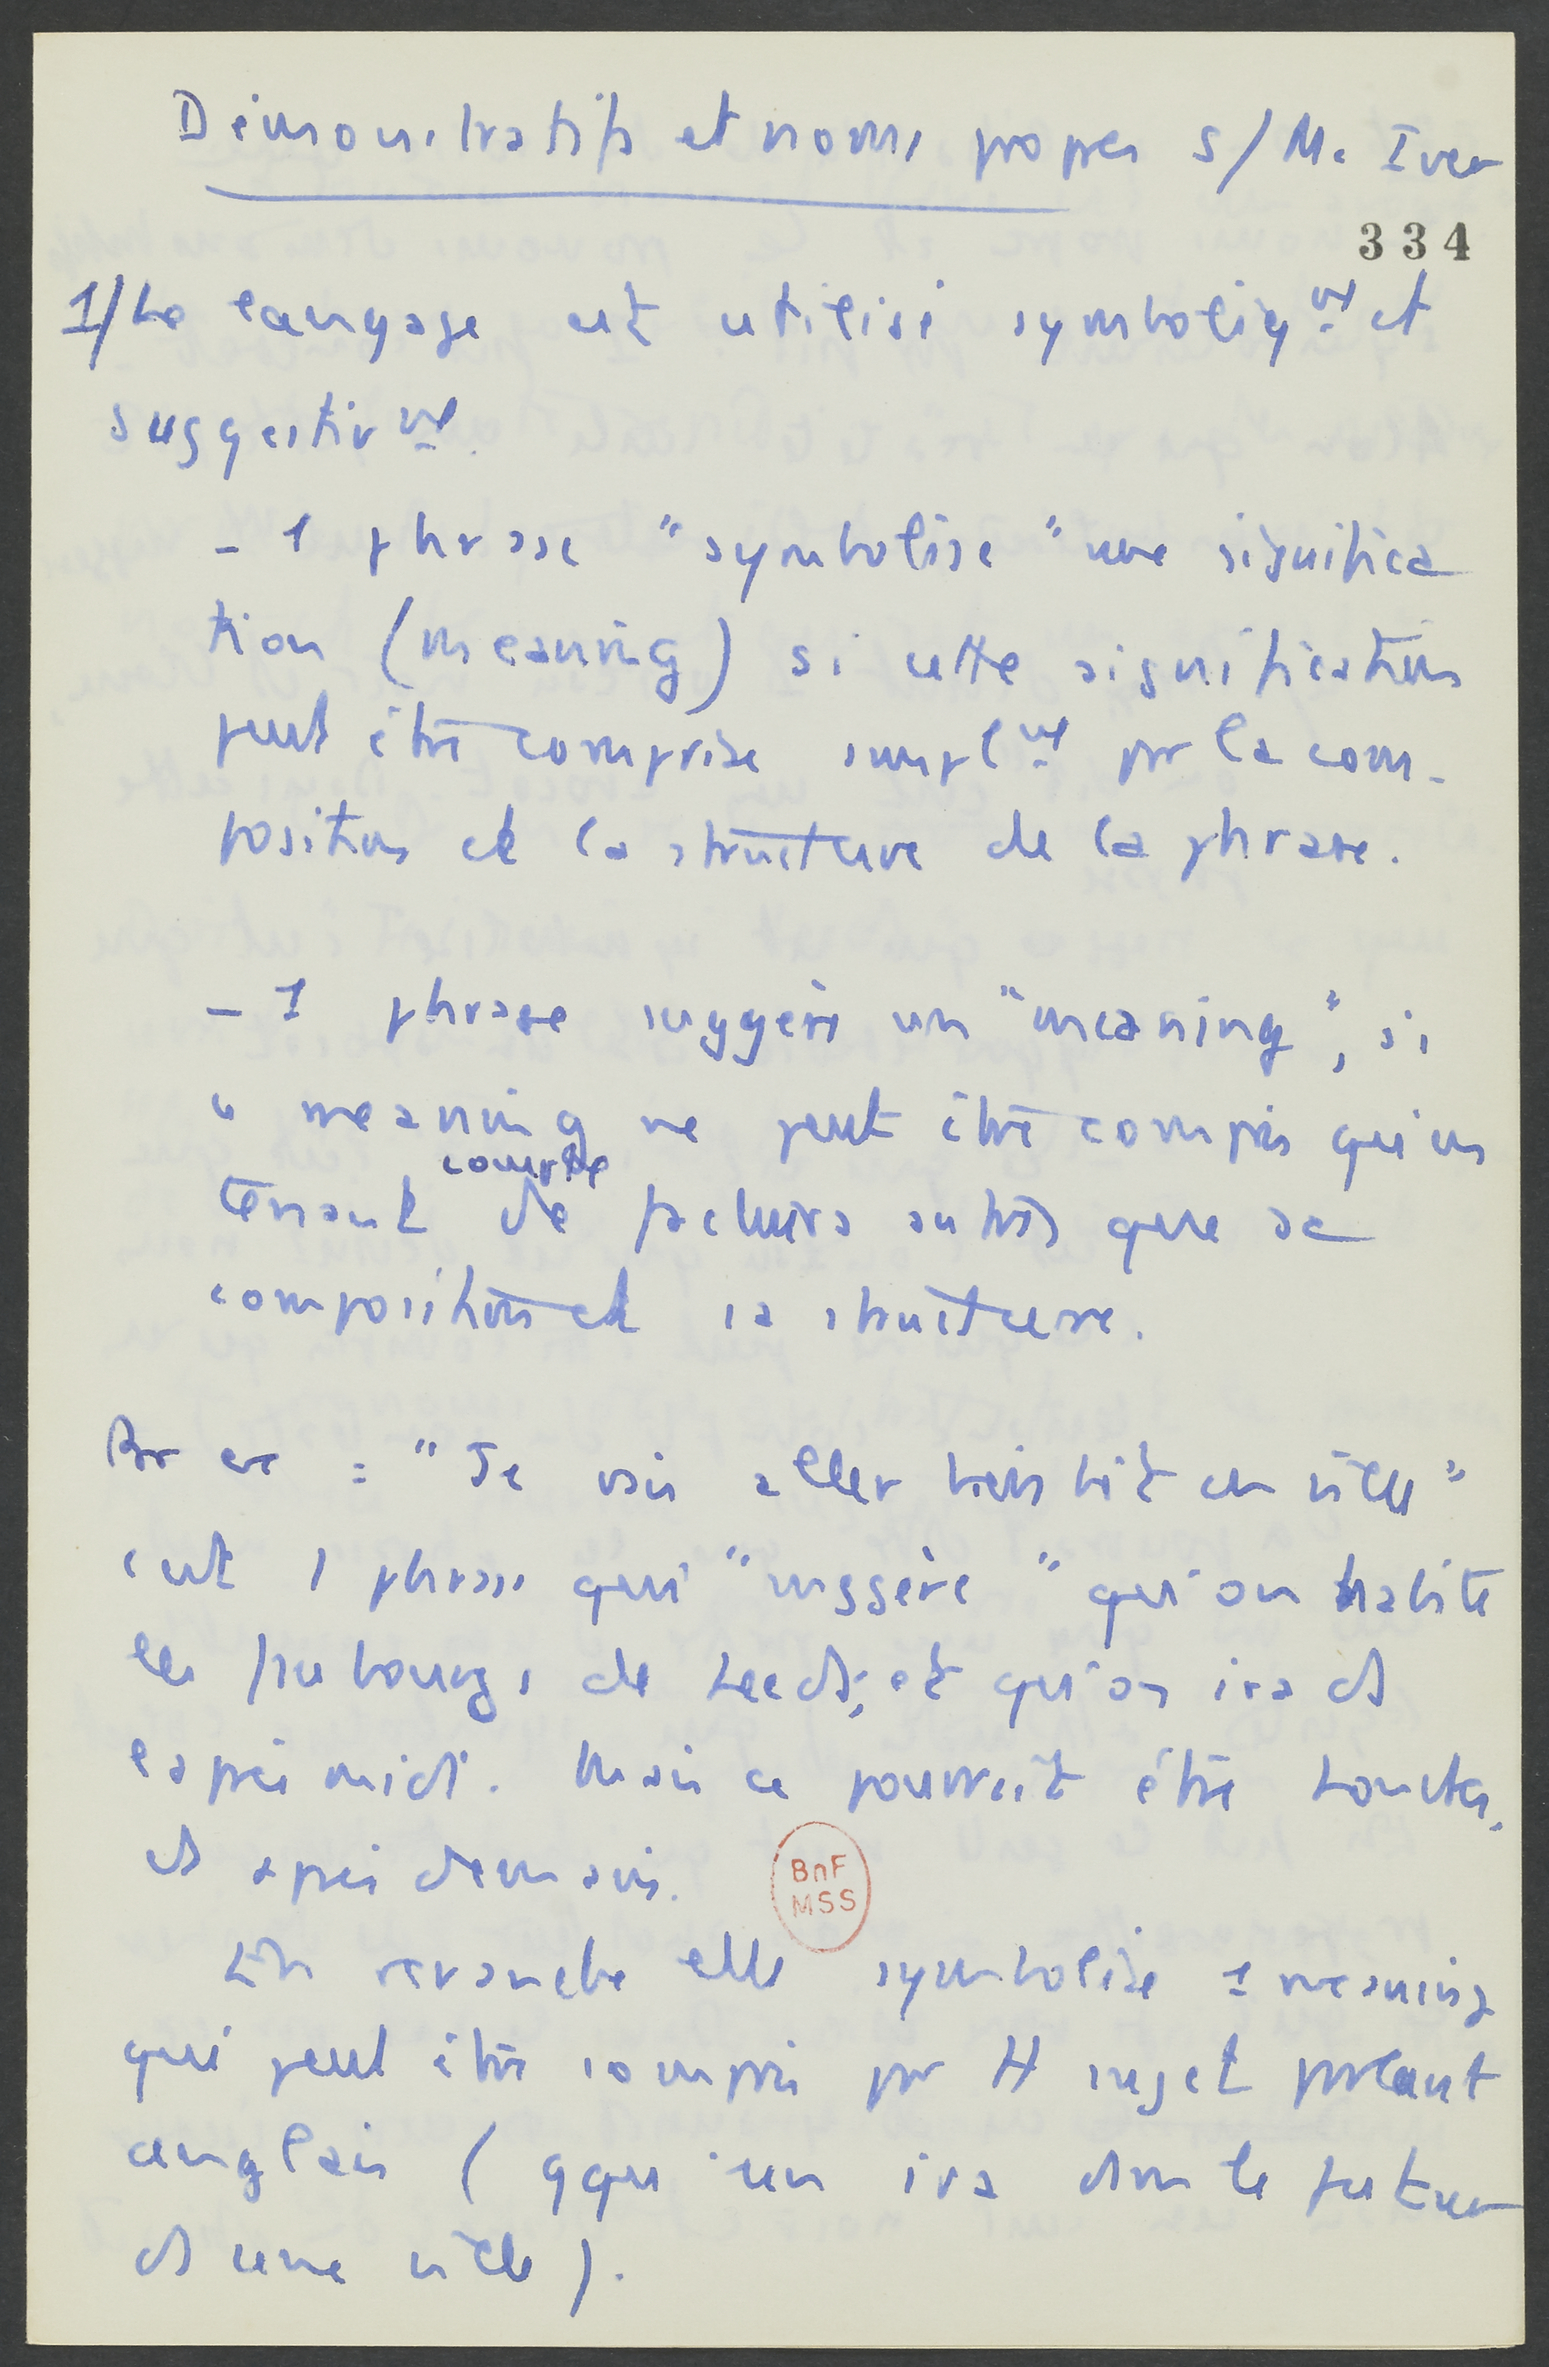 Démonstratifs et noms propres s/ Mc Iver
334
1/ Le langage est utilisé symboliqmt et
suggestivmt.
- 1 phrase "symbolise" une significa
tion (meaning) si cette signification
peut être comprise simplmt par la com-
position et la structure de la phrase.
- 1 phrase suggère un "meaning", si
ce meaning ne peut être compris qu'en
tenant compte de facteurs autres que sa
composition et sa structure.
Par ex : "Je vais aller bientôt en ville"
c'est 1 phrase qui "suggère" qu'on habite
les faubourgs de Leeds; et qu'on ira ds
l'après midi. Mais ce pourrait être Londres,
ds après demain.
BnF
MSS
En revanche elle symbolise 1 meaning
qui peut être compris par tt sujet parlant
anglais (qqu'un ira dans le futur
ds une ville).